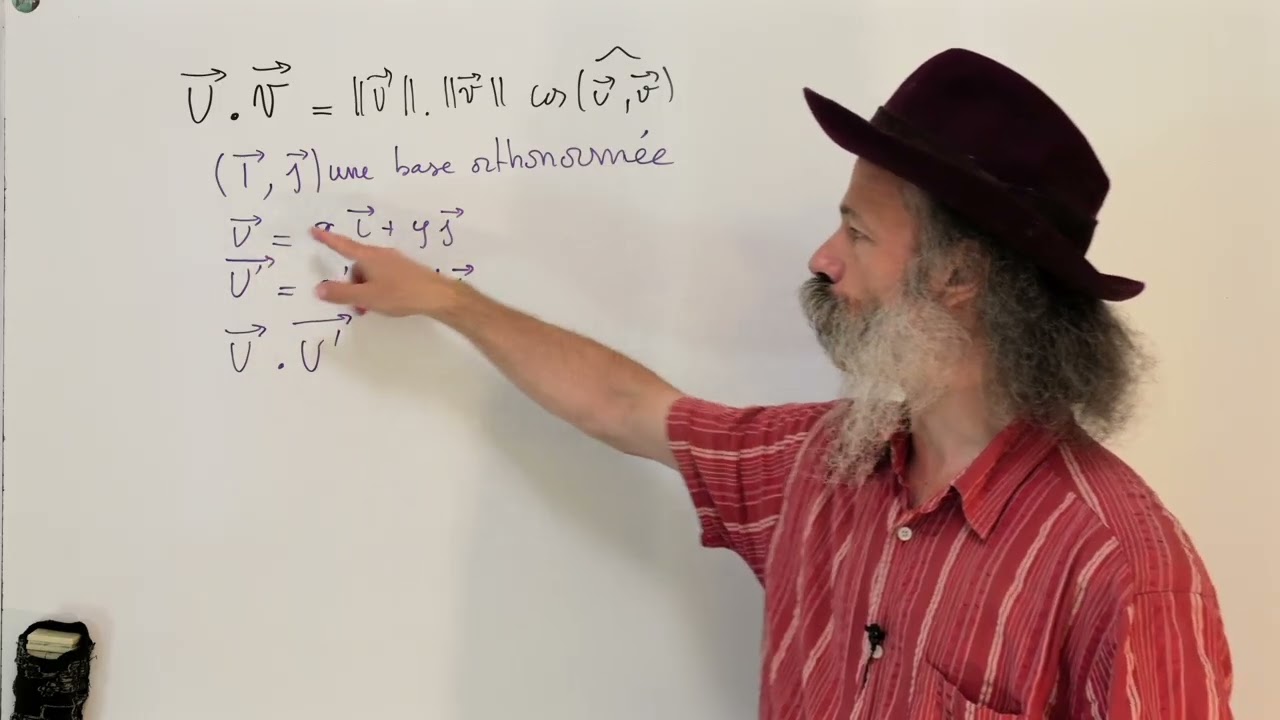 U⃗ . V⃗ = ||U⃗||.||V⃗|| cos(U⃗, V⃗)
(i⃗, j⃗) une base orthonormée
U⃗ = x i⃗ + y j⃗
U'⃗ =
U⃗ . U'⃗